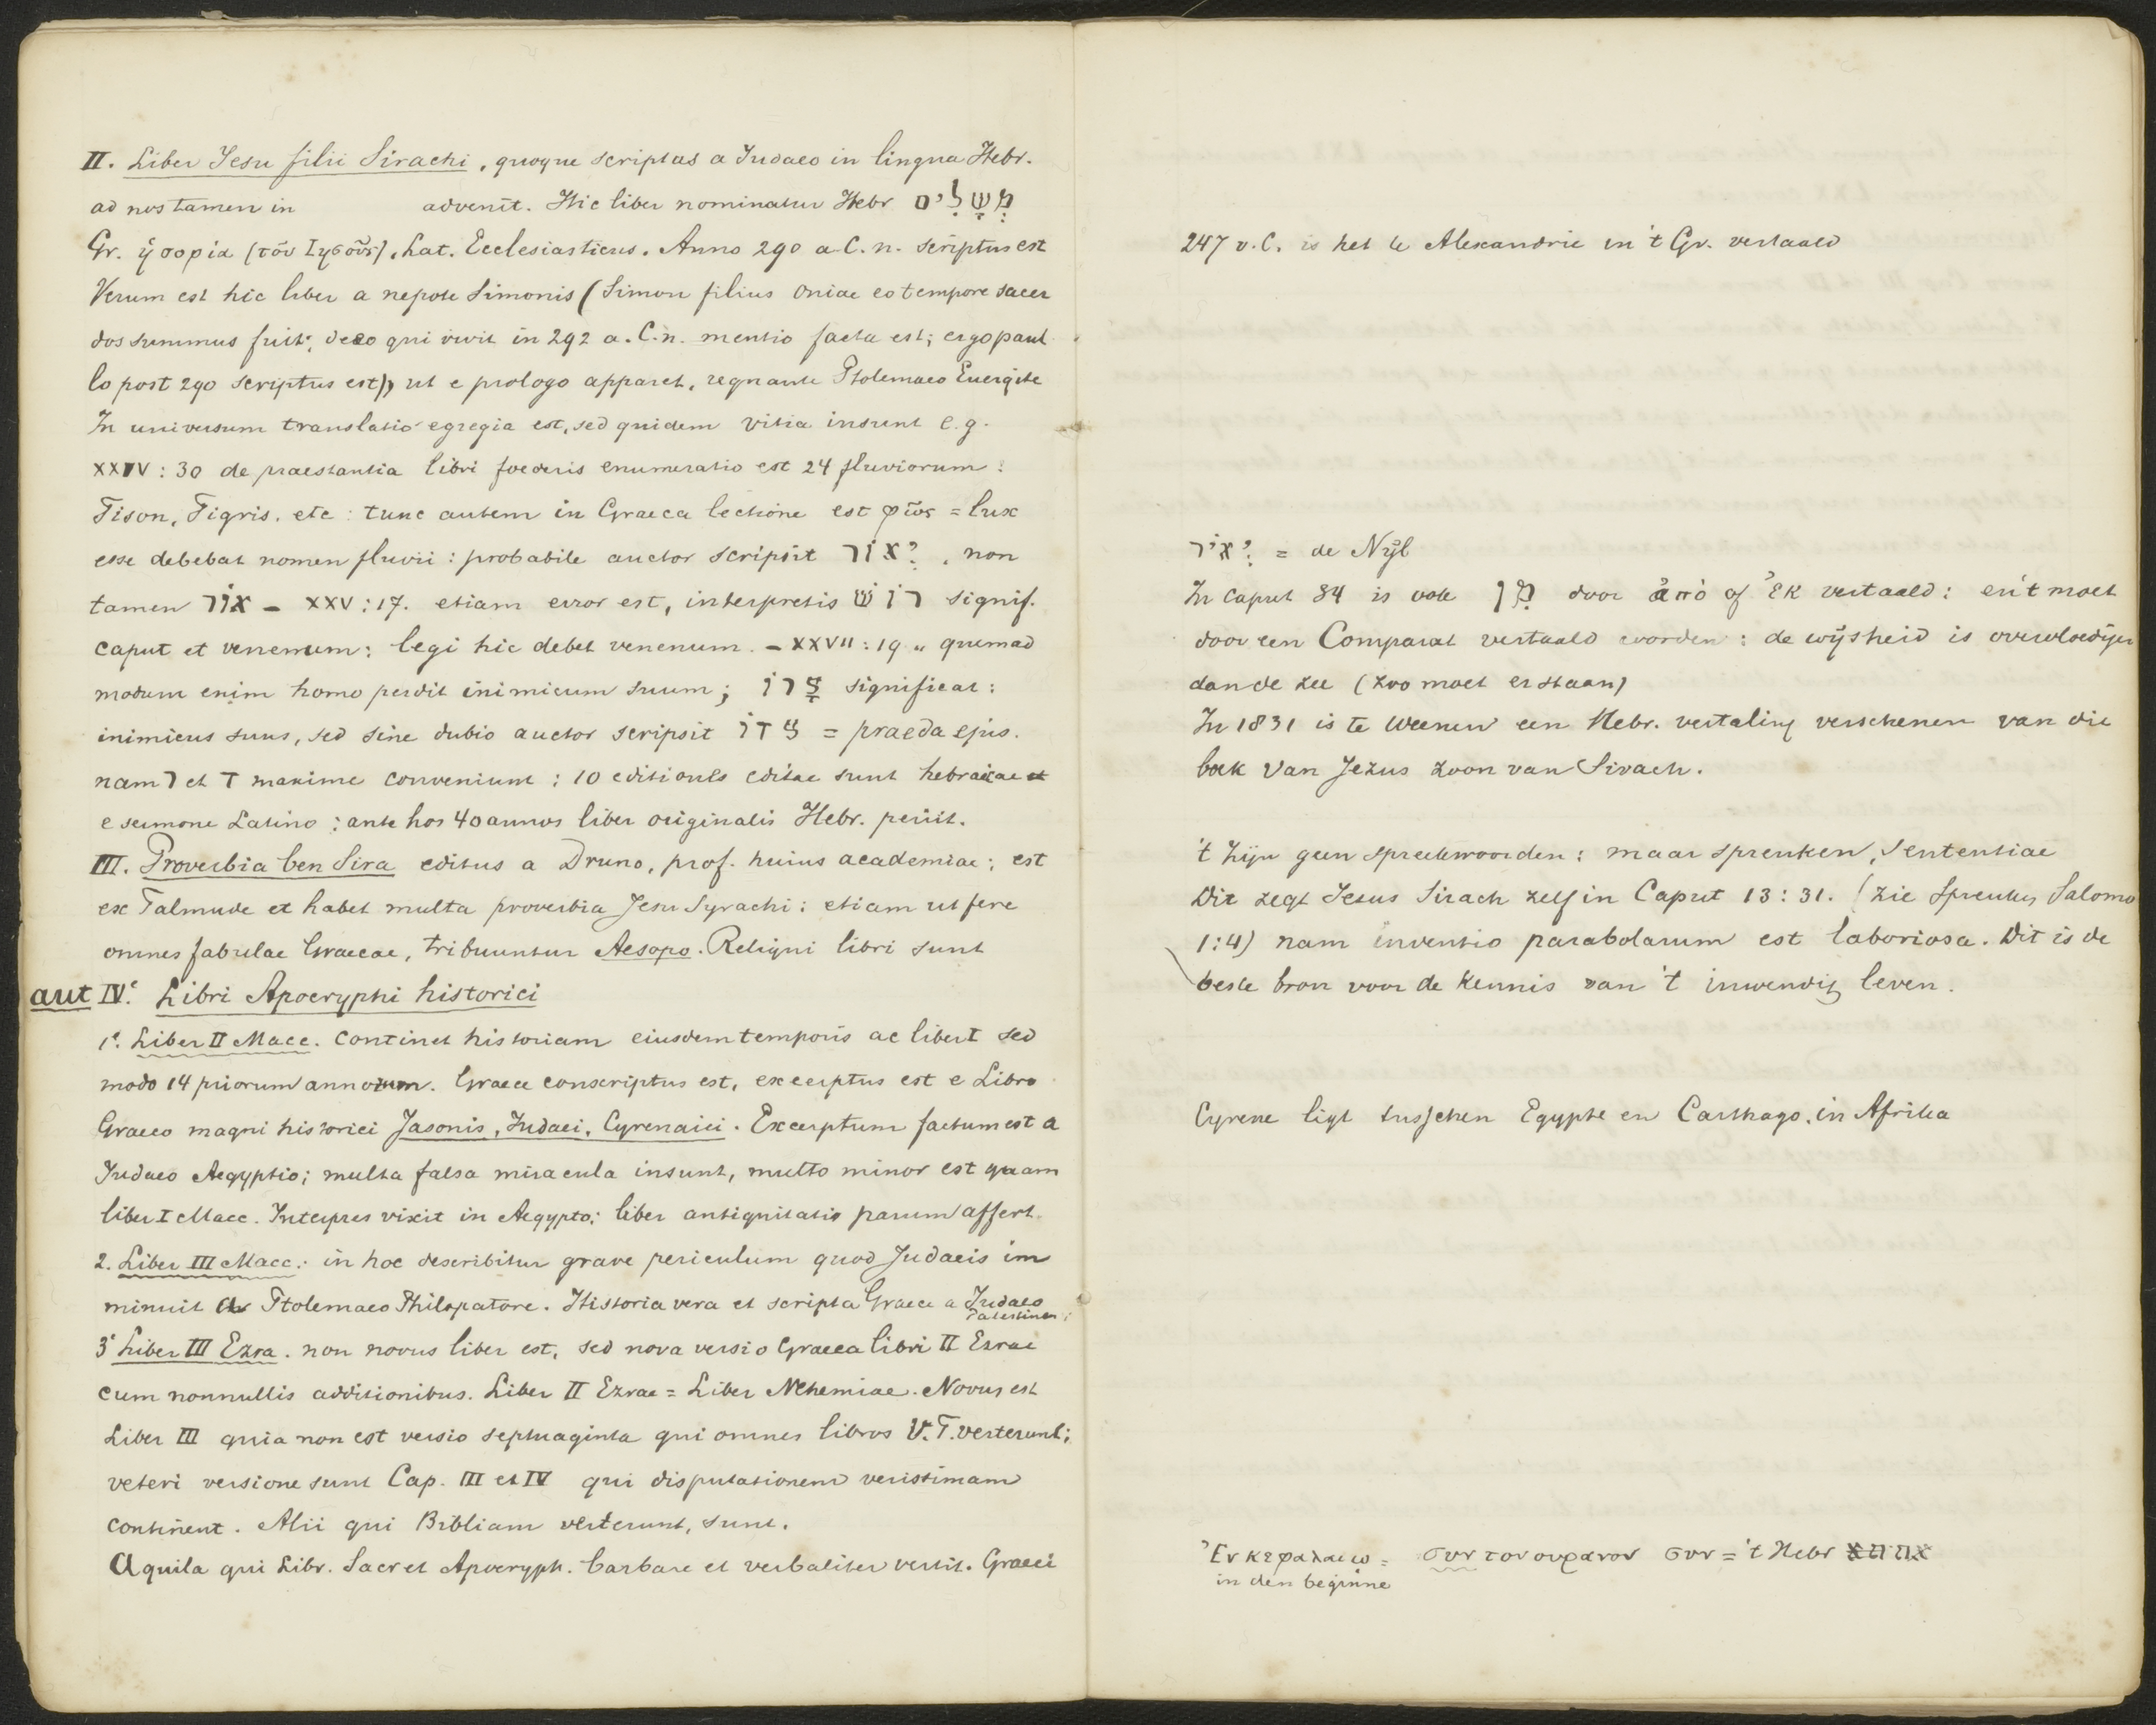 II. Liber Jesu filii Sirachi, quoque scriptus a Judaeo in lingua Hebr.
ad nos tamen in advenit. Hic liber nominatur Hebr מְשָׁלִים
Gr. ἡ σοφία (τοῦ Ἰησοῦς), Lat. Ecclesiasticus. Anno 290 a.C.n. scriptus est
Verum est hic liber a nepote Simonis (Simon filius Oniae eo tempore sacer
dos summus fuit; de eo qui vivit in 292 a.C.n. mentio facta est; ergo paul
lo post 290 scriptus est), ut e prologo apparet, regnante Ptolemaeo Euergete
In universum translatio egregia est, sed quidem vitia insunt e.g.
XXIV: 30 de praestantia libri foederis enumeratio est 24 fluviorum:
Fison, Tigris, etc: tunc autem in Graeca lectione est φῶς = lux
esse debebat nomen fluvii: probabile auctor scripsit יְאוֹר, non
tamen אוֹר – XXV: 17. etiam error est, interpretis רוֹשׁ signif.
caput et venenum: legi hic debet venenum. – XXVII: 19 „ quemad
modum enim homo perdit inimicum suum; צָרוֹ significat:
inimicus suus, sed sine dubio auctor scripsit צדוֹ = praeda ejus.
nam ר et ד maxime conveniunt: 10 editiones editae sunt hebraicae et
e sermone Latino: ante hos 40 annos liber originalis Hebr. periit.
III. Proverbia ben Sira editus a Druno, prof. huius academiae; est
ex Talmude et habet multa proverbia Jesu Syrachi: etiam ut fere
omnes fabulae Graecae, tribuuntur Aesopo. Reliqui libri sunt
aut IV.e Libri Apocryphi historici
1.e Liber II Macc. Continet historiam eiusdem temporis ac liber I sed
modo 14 priorum annorum. Graece conscriptus est, excerptus est e Libro
Graeco magni historici Jasonis, Judaei, Cyrenaici. Excerptum factum est a
Judaeo Aegyptio; multa falsa miracula insunt, multo minor est quam
liber I Macc. Interpres vixit in Aegypto; liber antiquitatis parum affert.
2. Liber III Macc.: in hoc describitur grave periculum quod Judaeis im
minuit a Ptolemaeo Philopatore. Historia vera et scripta Graece a Judaeo
Palestinen:
3e Liber III Ezra. non novus liber est, sed nova versio Graeca libri II Esrae
cum nonnullis additionibus. Liber II Ezrae = Liber Nehemiae. Novus est
Liber III quia non est versio septuaginta qui omnes libros V.T. verterunt;
veteri versione sunt Cap. III et IV qui disputationem verissimam
continent. Alii qui Bibliam verterunt, sunt.
Aquila qui Libr. Sacr et Apocryph. barbare et verbaliter vertit. Graeci
247 v.C. is het te Alexandrie in 't Gr. vertaald
יְאֹר = de Nyl
In Caput 34 is ook מִן door ἀπὸ of ἐκ vertaald: en 't moet
door een Comparat vertaald worden: de wijsheid is overvloediger
dan de zee (zoo moet er staan)
In 1831 is te Weenen een Hebr. vertaling verschenen van die
boek van Jezus zoon van Sirach.
't zijn geen spreekwoorden: maar spreuken, sententiae
Dit zegt Jesus Sirach zelf in Caput 13: 31. (zie Spreuken Salomo
1:4) nam inventio parabolarum est laboriosa. Dit is de
beste bron voor de kennis van 't inwendig leven.
Cyrene ligt tusschen Egypte en Carthago. in Afrika
Ἐν κεφαλαίω = συν τον ουρανον συν = 't Hebr את
in den beginne